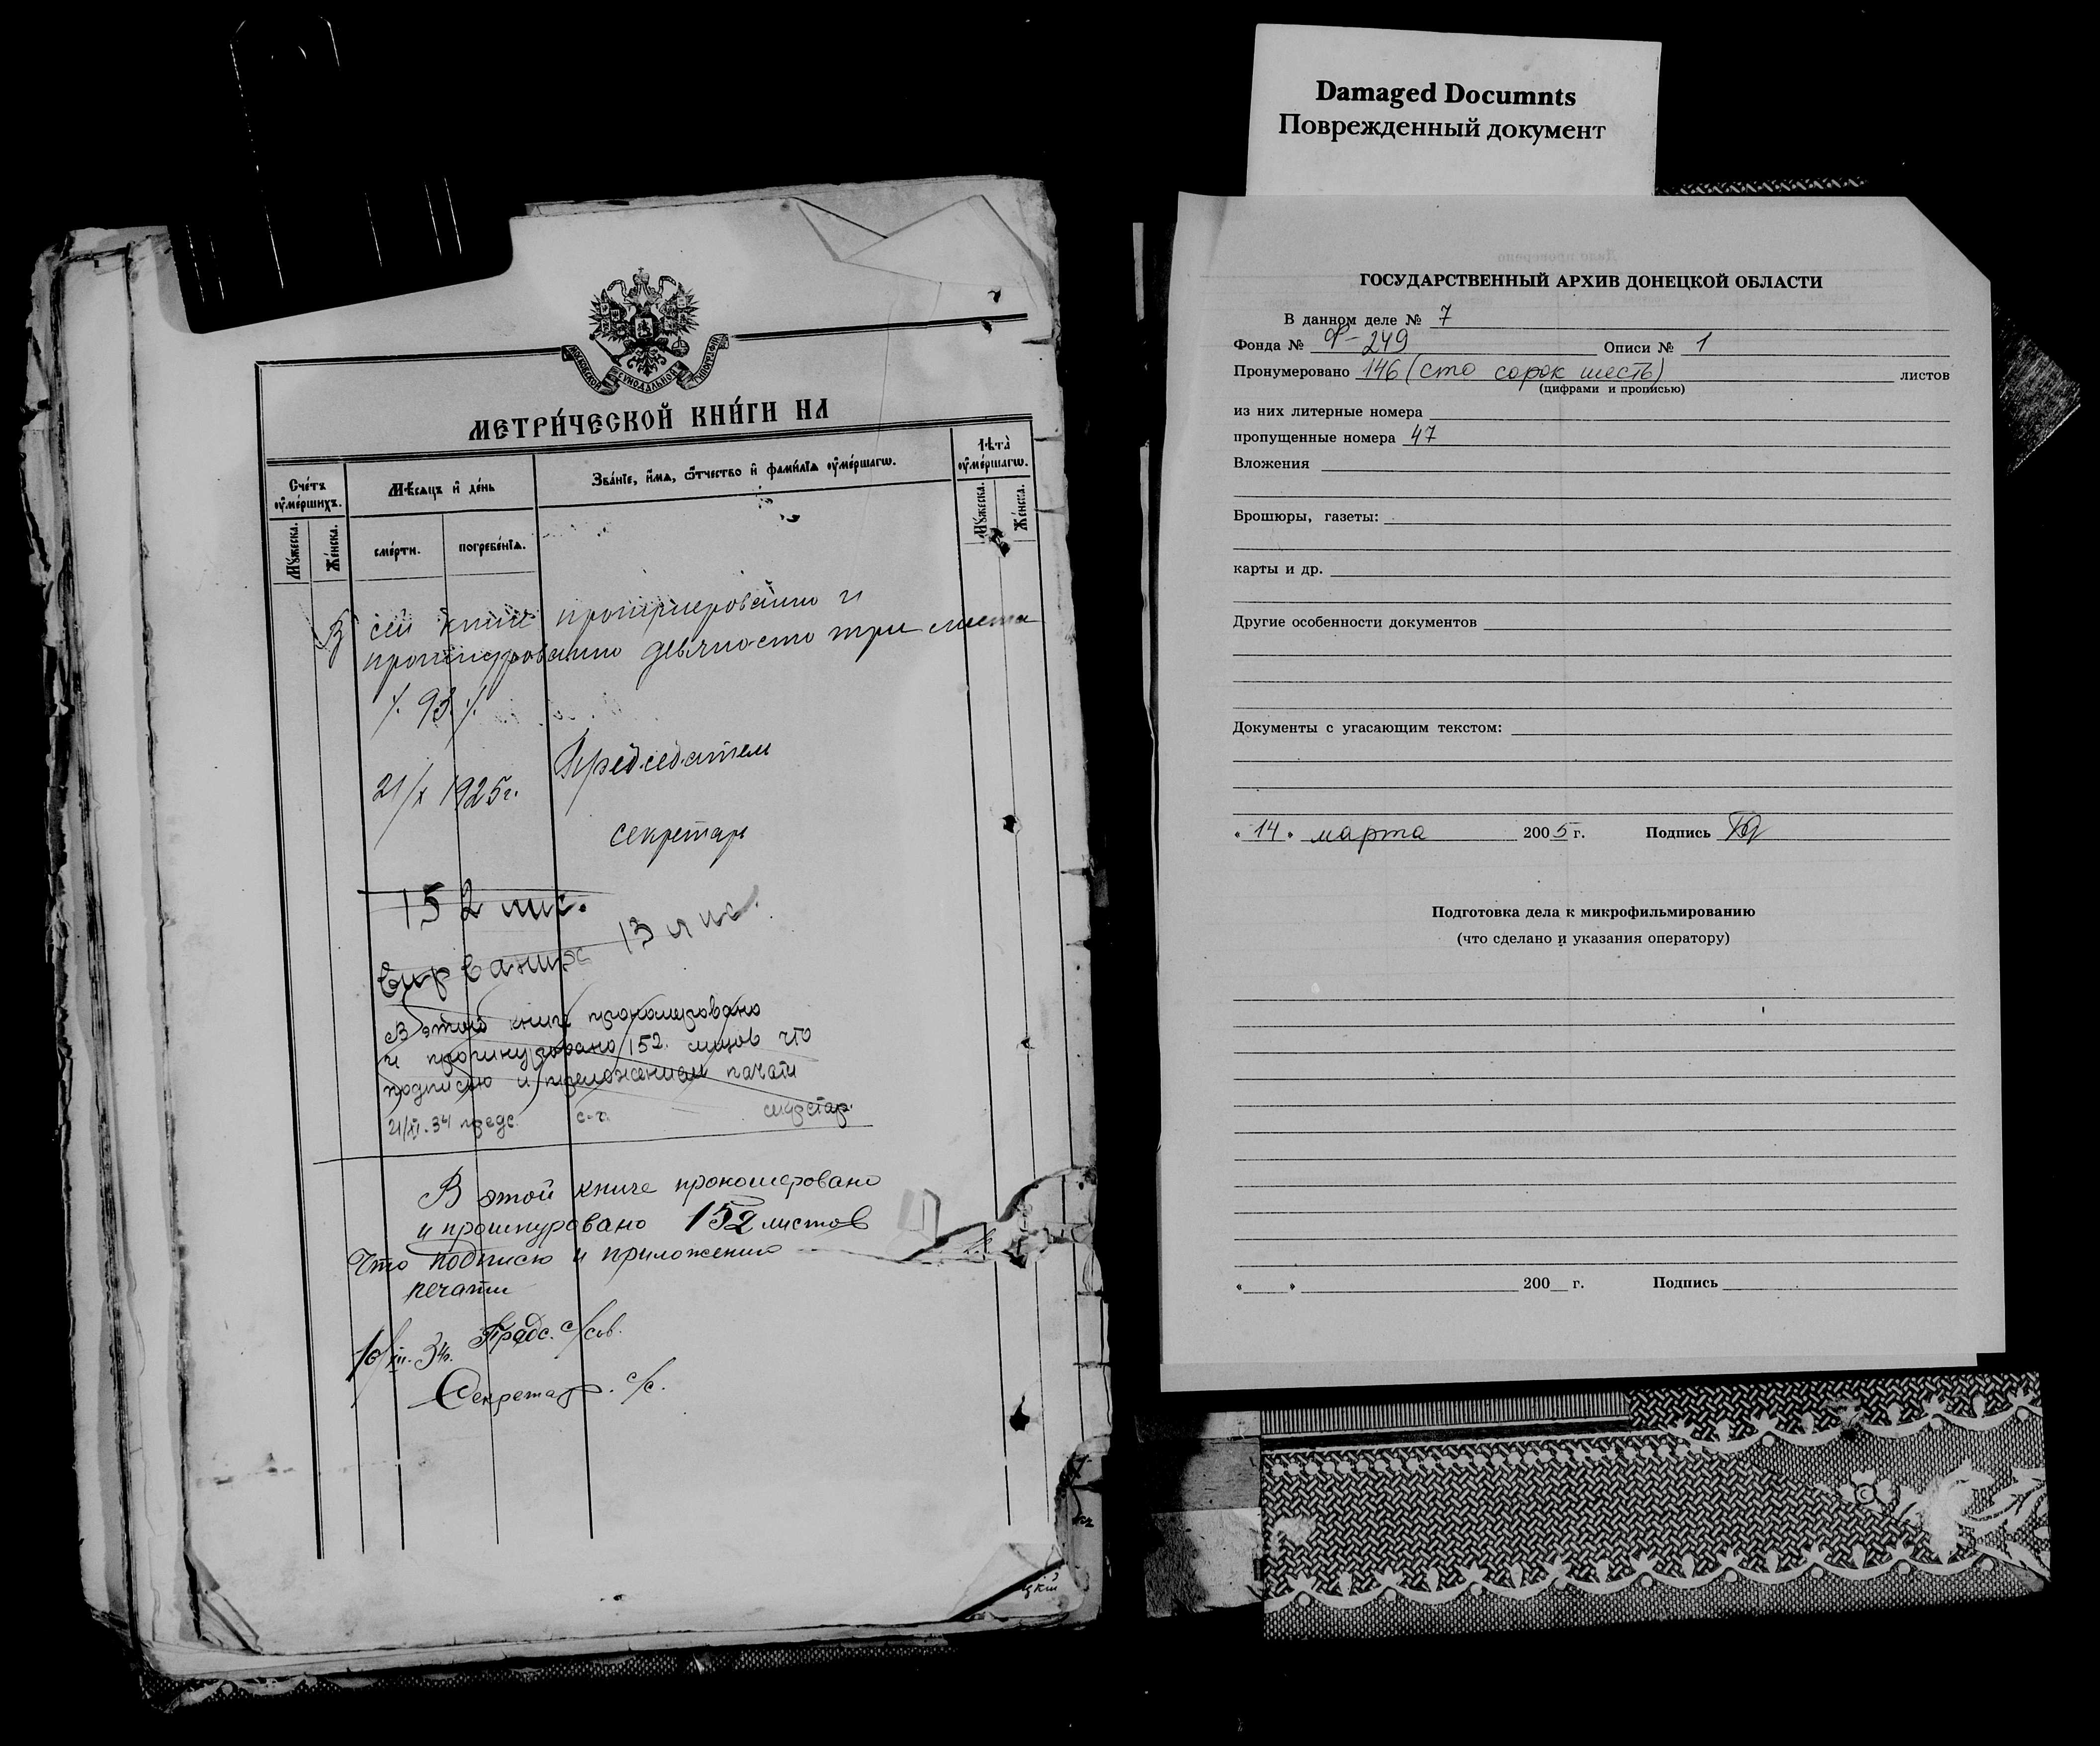 МОСКОВСКОЙ СѴНОДАЛЬНОЙ ТИПОГРАФІИ
МЕТРИ́ЧЕСКОЙ КНИ́ГИ НА
Сче́тъ ᲂу҆ме́ршихъ.
Мѣ́сяцъ и҆ де́нь
Зва́нїе, и҆́мѧ, ѻ҆́тчество и҆ фами́лїѧ ᲂу҆ме́ршагѡ.
Лѣ̑та ᲂу҆ме́ршагѡ.
Мꙋ́жеска.
Же́нска.
сме́рти.
погребе́нїѧ.
Мꙋ́жеска.
Же́нска.
В сей книге пронумеровано и
прошнуровано девяносто три листа
/. 93 ./.
21/X 1925 г.
Председатель
секретарь
152 лис.
вирваних 13 лис.
В этой книге прономеровано
и прошнуровано 152. листов что
подписью и приложением печати
21/XI. 34 предс. с-с. секретар.
В этой книге прономеровано
и прошнуровано 152 листов
Что подписю и приложению
печати
10/XII. 34г. Предс. с/сов.
Секретар. с/с.
цкій
Damaged Documnts
Поврежденный документ
ГОСУДАРСТВЕННЫЙ АРХИВ ДОНЕЦКОЙ ОБЛАСТИ
В данном деле № 7
Фонда № Ф-249 Описи № 1
Пронумеровано 146 (сто сорок шесть) листов
(цифрами и прописью)
из них литерные номера
пропущенные номера 47
Вложения
Брошюры, газеты:
карты и др.
Другие особенности документов
Документы с угасающим текстом:
« 14 » марта 2005 г. Подпись
Подготовка дела к микрофильмированию
(что сделано и указания оператору)
« » 200 г. Подпись